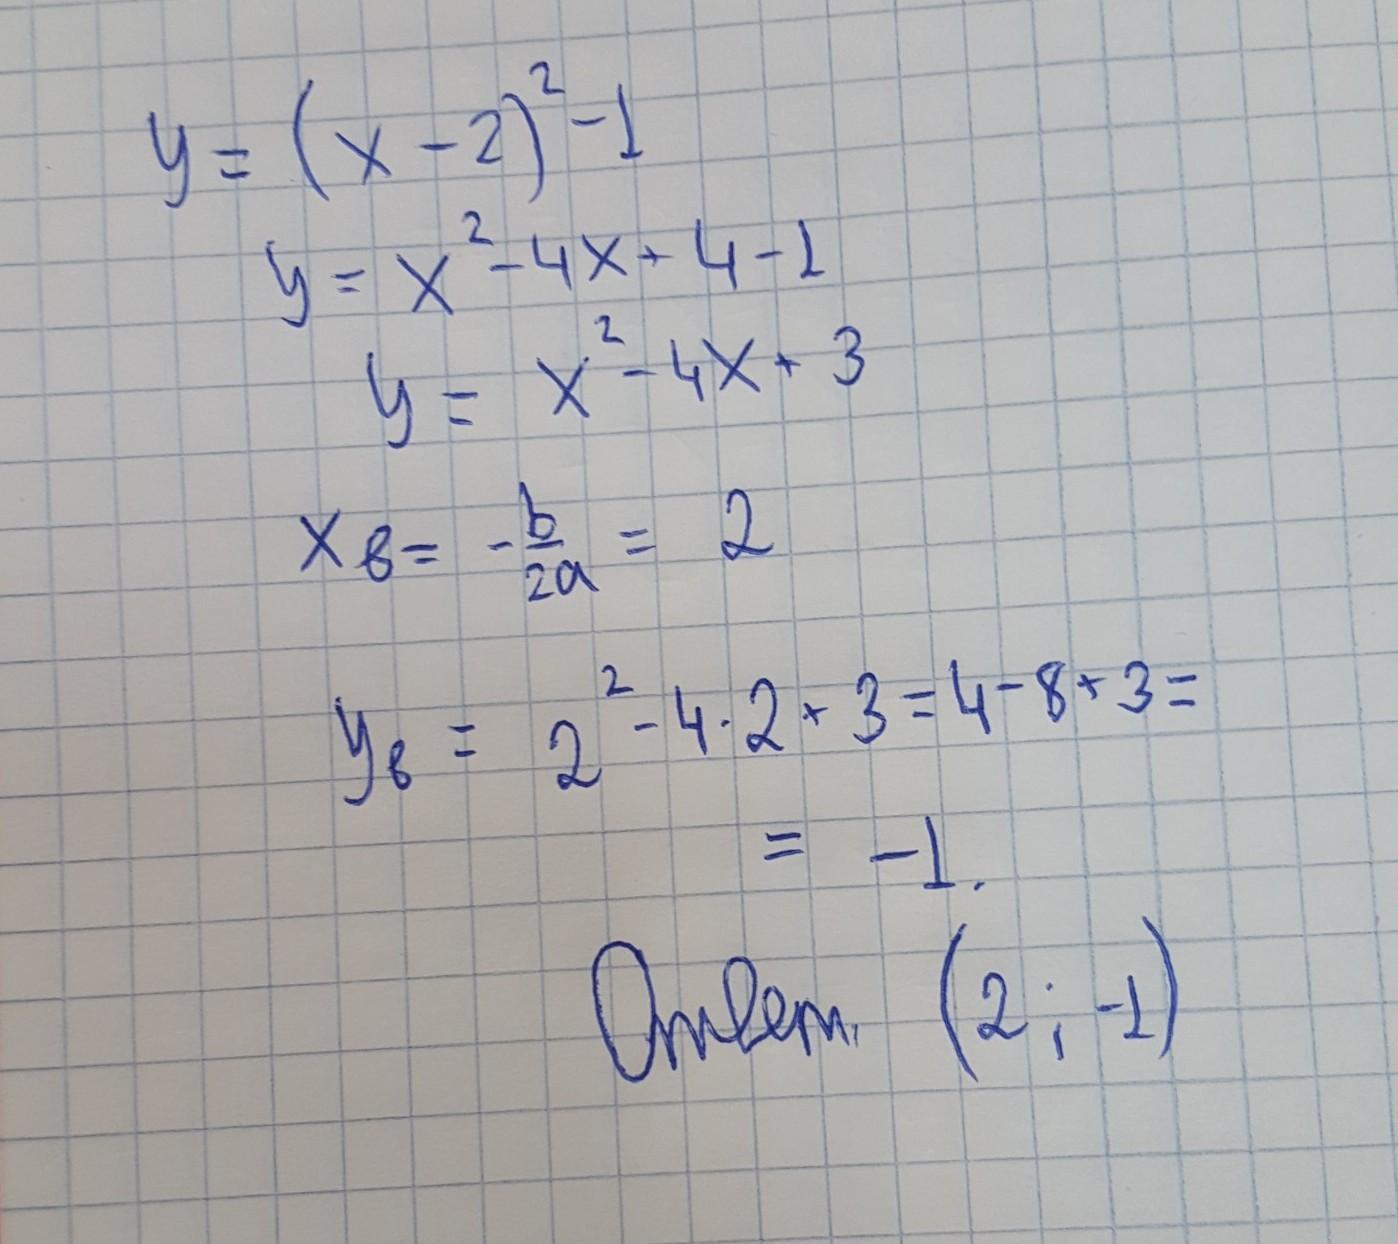 y = (x - 2)² - 1
y = x² - 4x + 4 - 1
y = x² - 4x + 3
xв = - b/2a = 2
yв = 2² - 4 · 2 + 3 = 4 - 8 + 3 =
= -1.
Ответ. (2 ; -1)